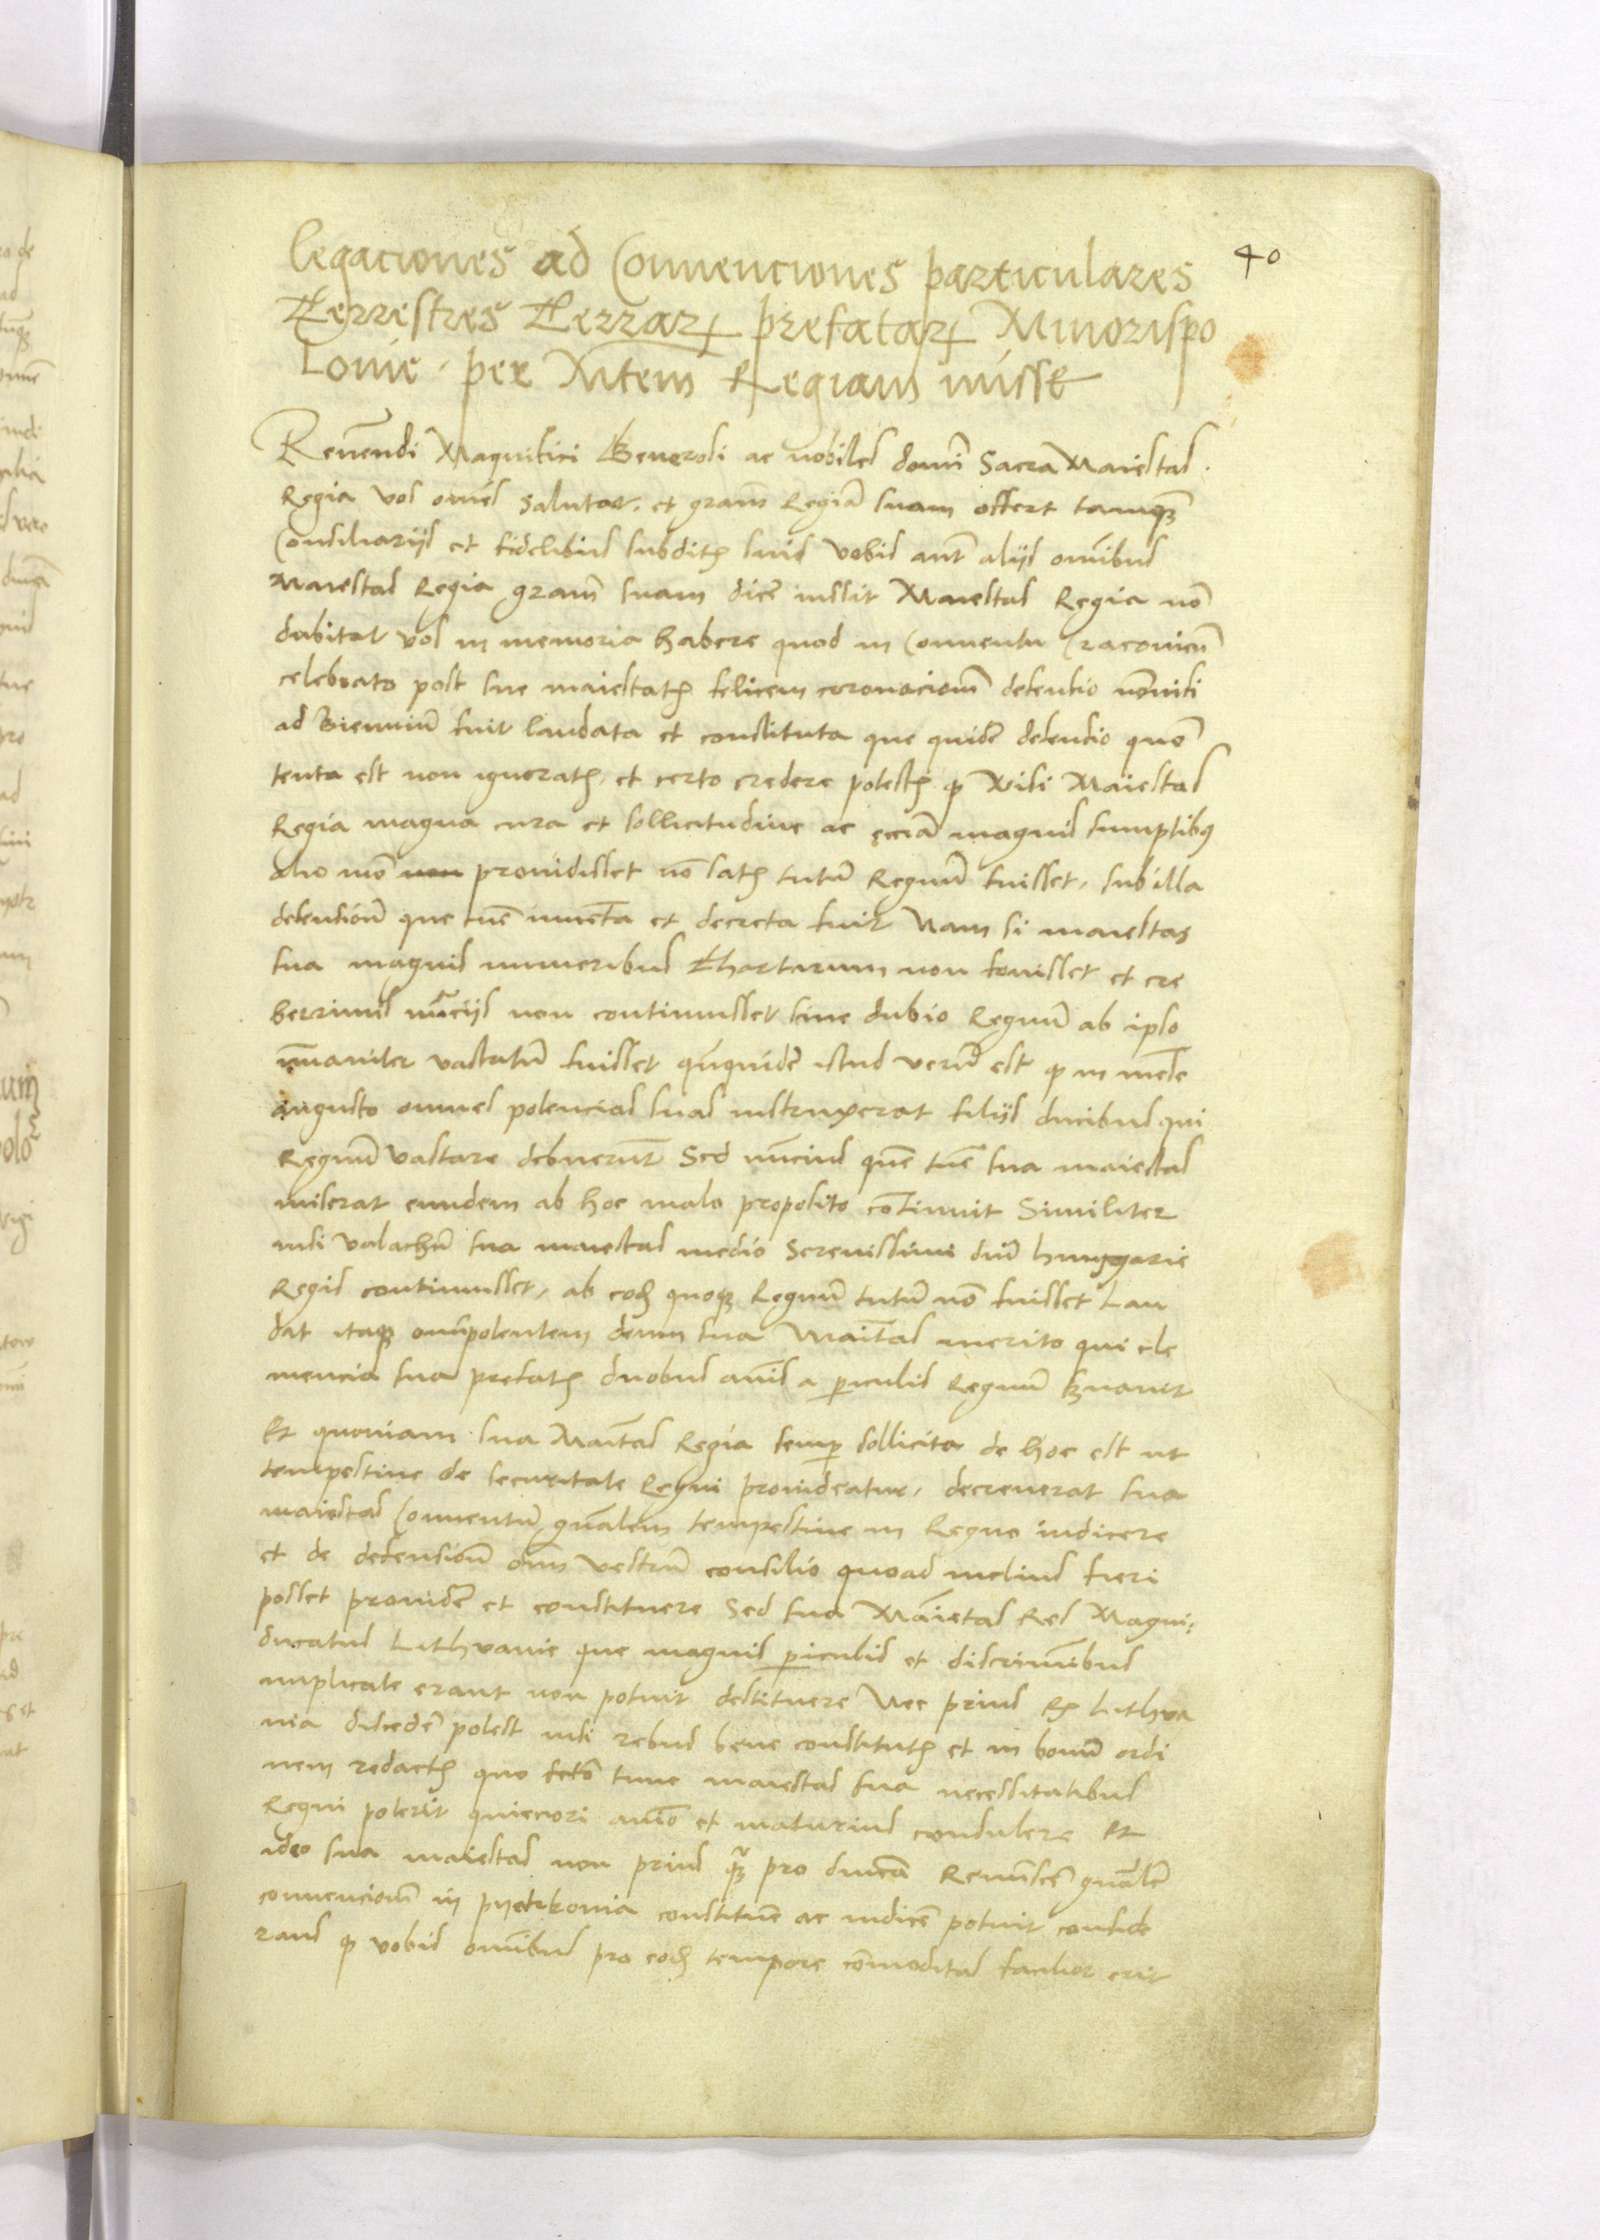 40
Legaciones ad Convenciones particulares
Terrestres Terrarꝝ prefatarꝝ Minorispo
lonie · per Mtem Regiam misse
Reverendi Magnifici Generosi ac nobiles domini Sacra Maiestas
Regia vos omnes salutat, et gram̄ Regiā suam offert tamqꝫ
Consiliariis et fidelibus subditis suis vobis aut̄ aliis omībus
Maiestas Regia gram̄ suam dicē iussit Maiestas Regia nō
dubitat vos in memoria habere quod in Conventu Cracovien̄
celebrato post sue maiestatis felicem coronacionē defensio
ad Bienniū fuit laudata et constituta que quidē defensio quō
tenta est non ignoratis, et certo credere potestis ꝙ Nisi Maiestas
Regia magna cura et sollicitudine ac eciā magnis sumptibꝫ
alio mō providisset nō satis tutū Regnū fuisset, sub illa
defensionē que tūc inventa et decreta fuit Nam si maiestas
sua magnis muneribus Thartarum non fovisset et cre
berrimis nūciis non continuisset sine dubio Regnū ab ipso
īmaniter vastatū fuisset qn̄quidē istud verū est ꝙ in mēse
augusto omnes potencias suas instruxerat filiis ducibus qui
Regnū vastare debuerūt Sed nūcius quē tūc sua maiestas
miserat eundem ab hoc malo proposito cōtinuit Similiter
nisi valachū sua maiestas medio Serenissimi dnī hungarie
Regis continuisset, ab eodē quoqꝫ Regnū tutū nō fuisset Lau
dat itaqꝫ omīpotentem deum sua Maītas merito qui cle
mencia sua prefatis duobus annis a ꝑiculis Regnū
Et quoniam sua Maītas Regia semꝑ sollicita de hoc est ut
tempestive de securitate Regni provideatur, decreverat sua
maiestas Conventū gn̄alem tempestive in Regno indicere
et de defensionē oīm vestrū consilio quoad melius fieri
posset providē et constituere Sed sua Māiestas Res Magni
ducatus Lithvanie que magnis ꝑiculis et discriminībus
implicate erant non potuit destituere Nec prius ex Lithva
nia discedē potest nisi rebus bene constitutis et in bonū ordi
nem redactis quo fcto tunc maiestas sua necessitatibus
Regni poterit quieciori aīo et maturius consulere Et
ideo sua maiestas non prius qꝫ pro dnīca Reminiscē gn̄alē
convencionē in pyetrkovia constituē ac indicē potuit conside
rans ꝙ vobis omībus pro eodē tempore cōmoditas facilior erit